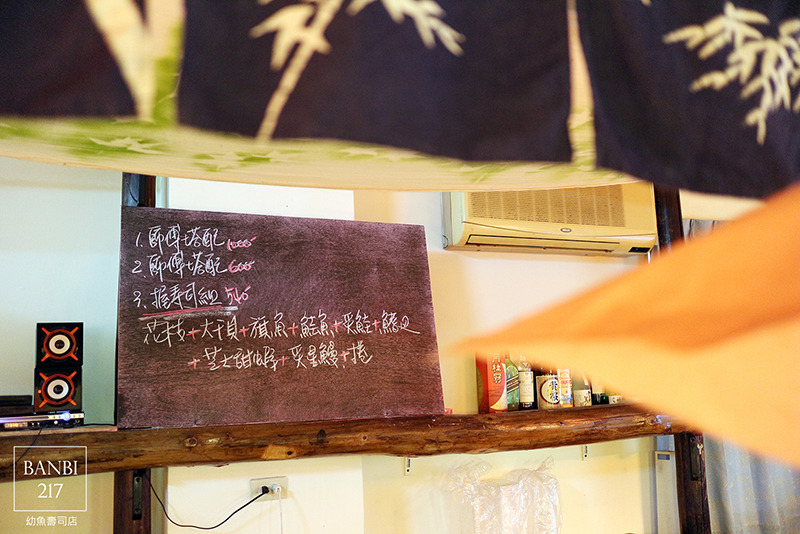 1. 師傅搭配 1000
2. 師傅搭配 600
3. 握壽司組 540
花枝+大干貝+旗魚+鮭魚+炙鮭+鰭邊
+芝士甜蝦+炙星鰻+捲
BANBI
217
幼魚壽司店